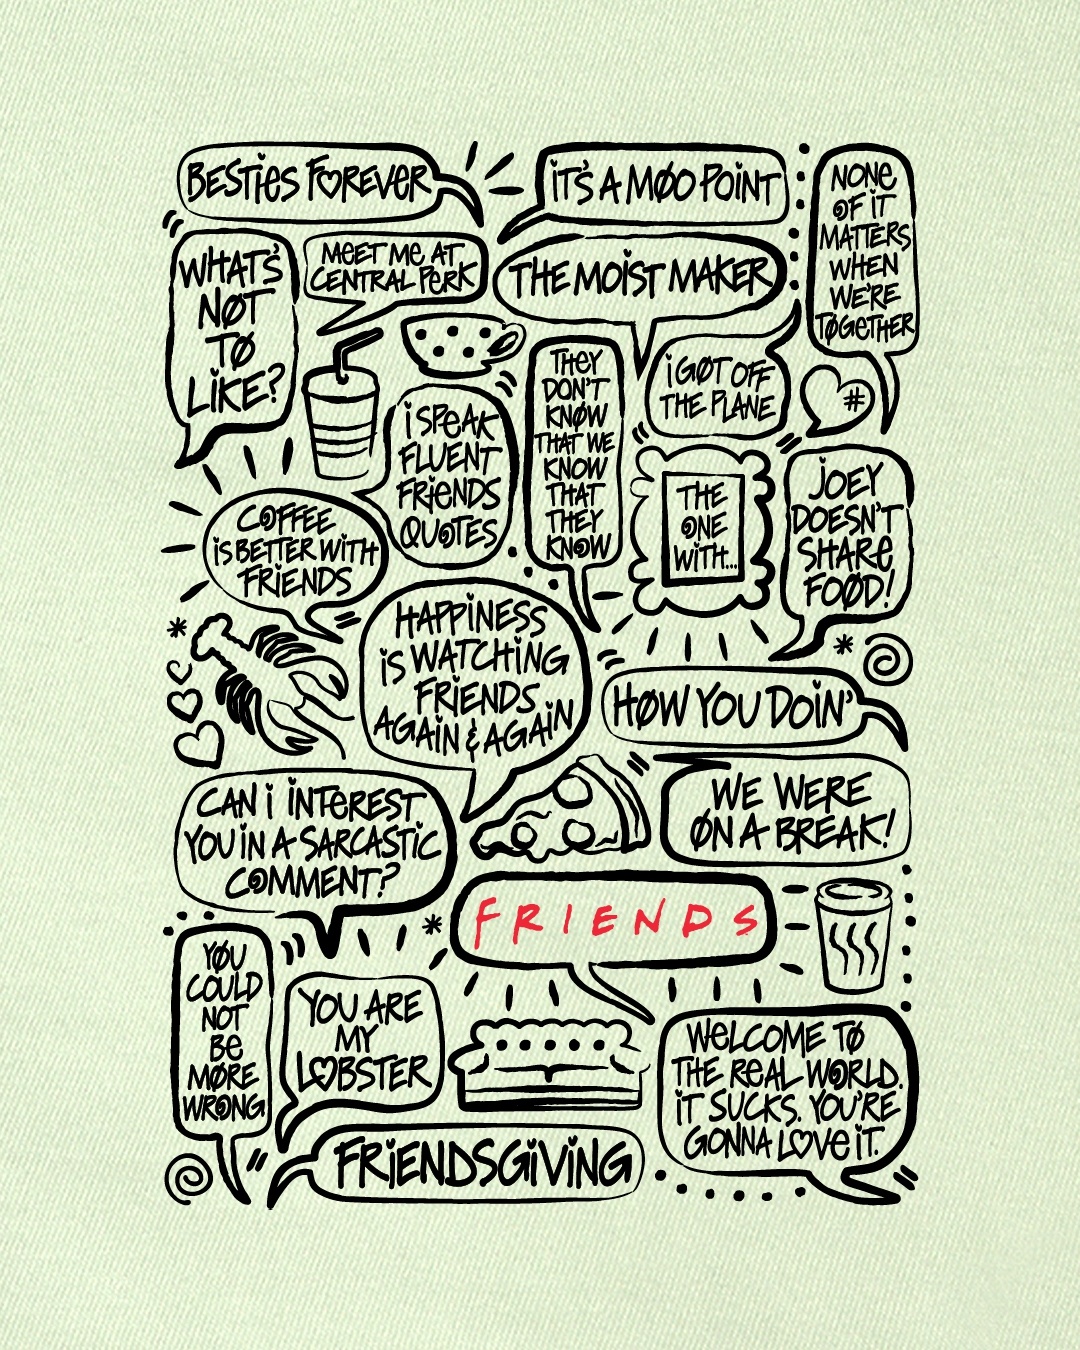 BESTiES FOREVER
iT'S A MOO POiNT
NONE
OF iT
MATTERS
WHEN
WE'RE
TOGETHER
WHAT'S
NOT
TO
LiKE?
MEET ME AT
CENTRAL PERK
THE MOiST MAKER
THEY
DON'T
KNOW
THAT WE
KNOW
THAT
THEY
KNOW
i GOT OFF
THE PLANE
#
i SPEAK
FLUENT
FRiENDS
QUOTES
THE
ONE
WiTH...
JOEY
DOESN'T
SHARE
FOOD!
COFFEE
iS BETTER WiTH
FRiENDS
HAPPiNESS
iS WATCHiNG
FRiENDS
AGAiN & AGAiN
HOW YOU DOiN'
CAN i iNTEREST
YOU iN A SARCASTiC
COMMENT?
WE WERE
ON A BREAK!
FRIENDS
YOU
COULD
NOT
BE
MORE
WRONG
YOU ARE
MY
LOBSTER
WELCOME TO
THE REAL WORLD.
iT SUCKS. YOU'RE
GONNA LOVE iT.
FRiENDSGiViNG